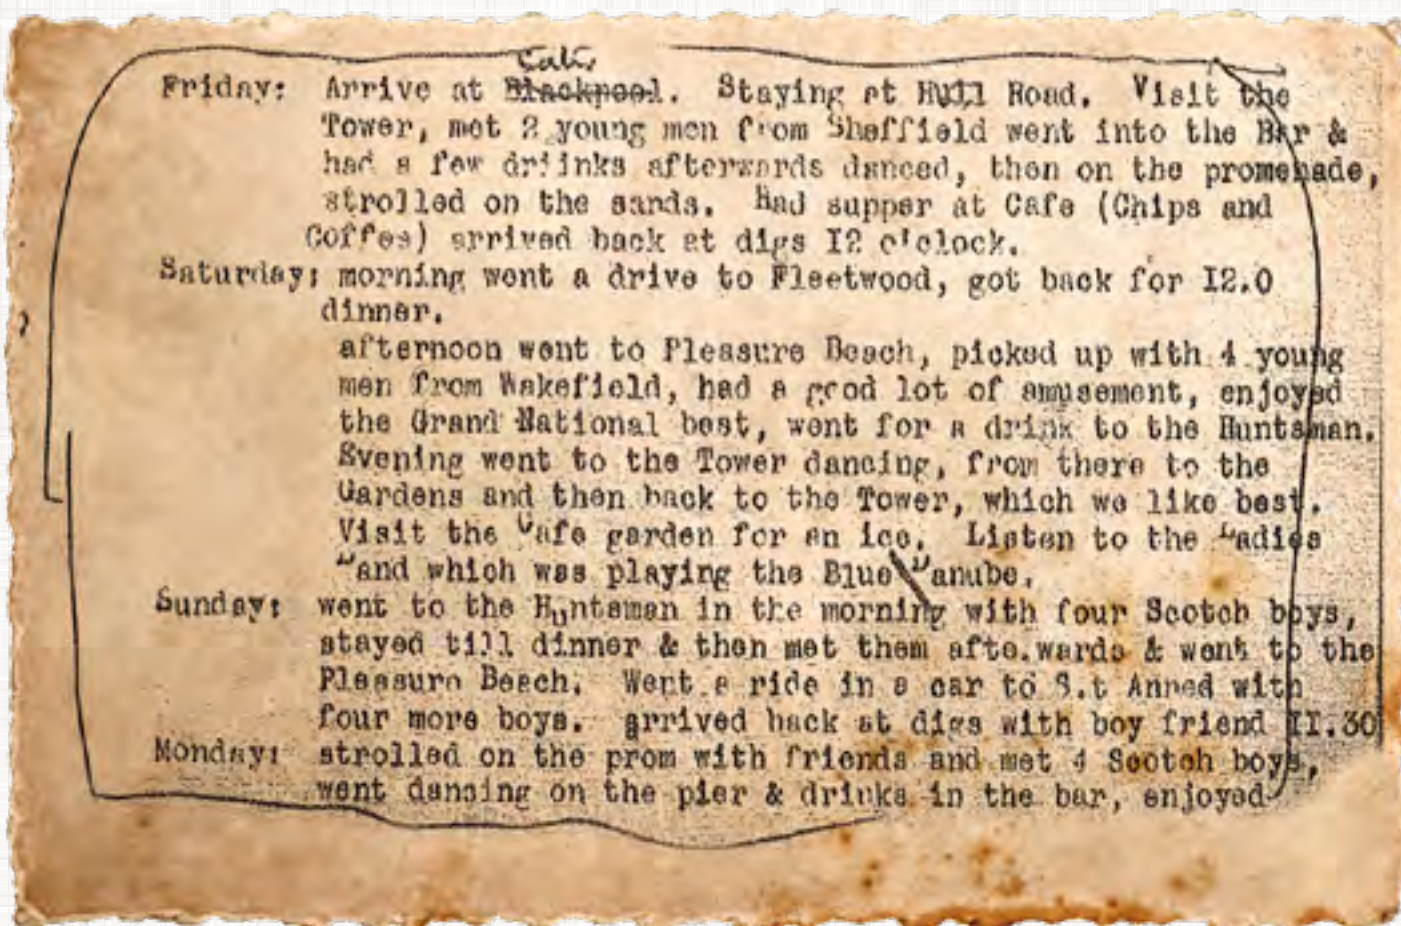 Friday: Arrive at Blackpool. Staying at Hull Road. Visit the
Tower, met 2 young men from Sheffield went into the Bar &
had a few driinks afterwards danced, then on the promenade,
strolled on the sands. Had supper at Cafe (Chips and
Coffee) arrived back at digs I2 o'clock.
Saturday: morning went a drive to Fleetwood, got back for I2.0
dinner.
afternoon went to Pleasure Beach, picked up with 4 young
men from Wakefield, had a good lot of amusement, enjoyed
the Grand National best, went for a drink to the Huntsman.
Evening went to the Tower dancing, from there to the
Gardens and then back to the Tower, which we like best.
Visit the Cafe garden for an ice. Listen to the Ladies
Band which was playing the Blue Danube.
Sunday: went to the Huntsman in the morning with four Scotch boys,
stayed till dinner & then met them afte.wards & went to the
Pleasure Beach. Went a ride in a car to S.t Anned with
four more boys. arrived back at digs with boy friend II.30
Monday: strolled on the prom with friends and met 4 Scotch boys,
went dancing on the pier & drinks in the bar, enjoyed